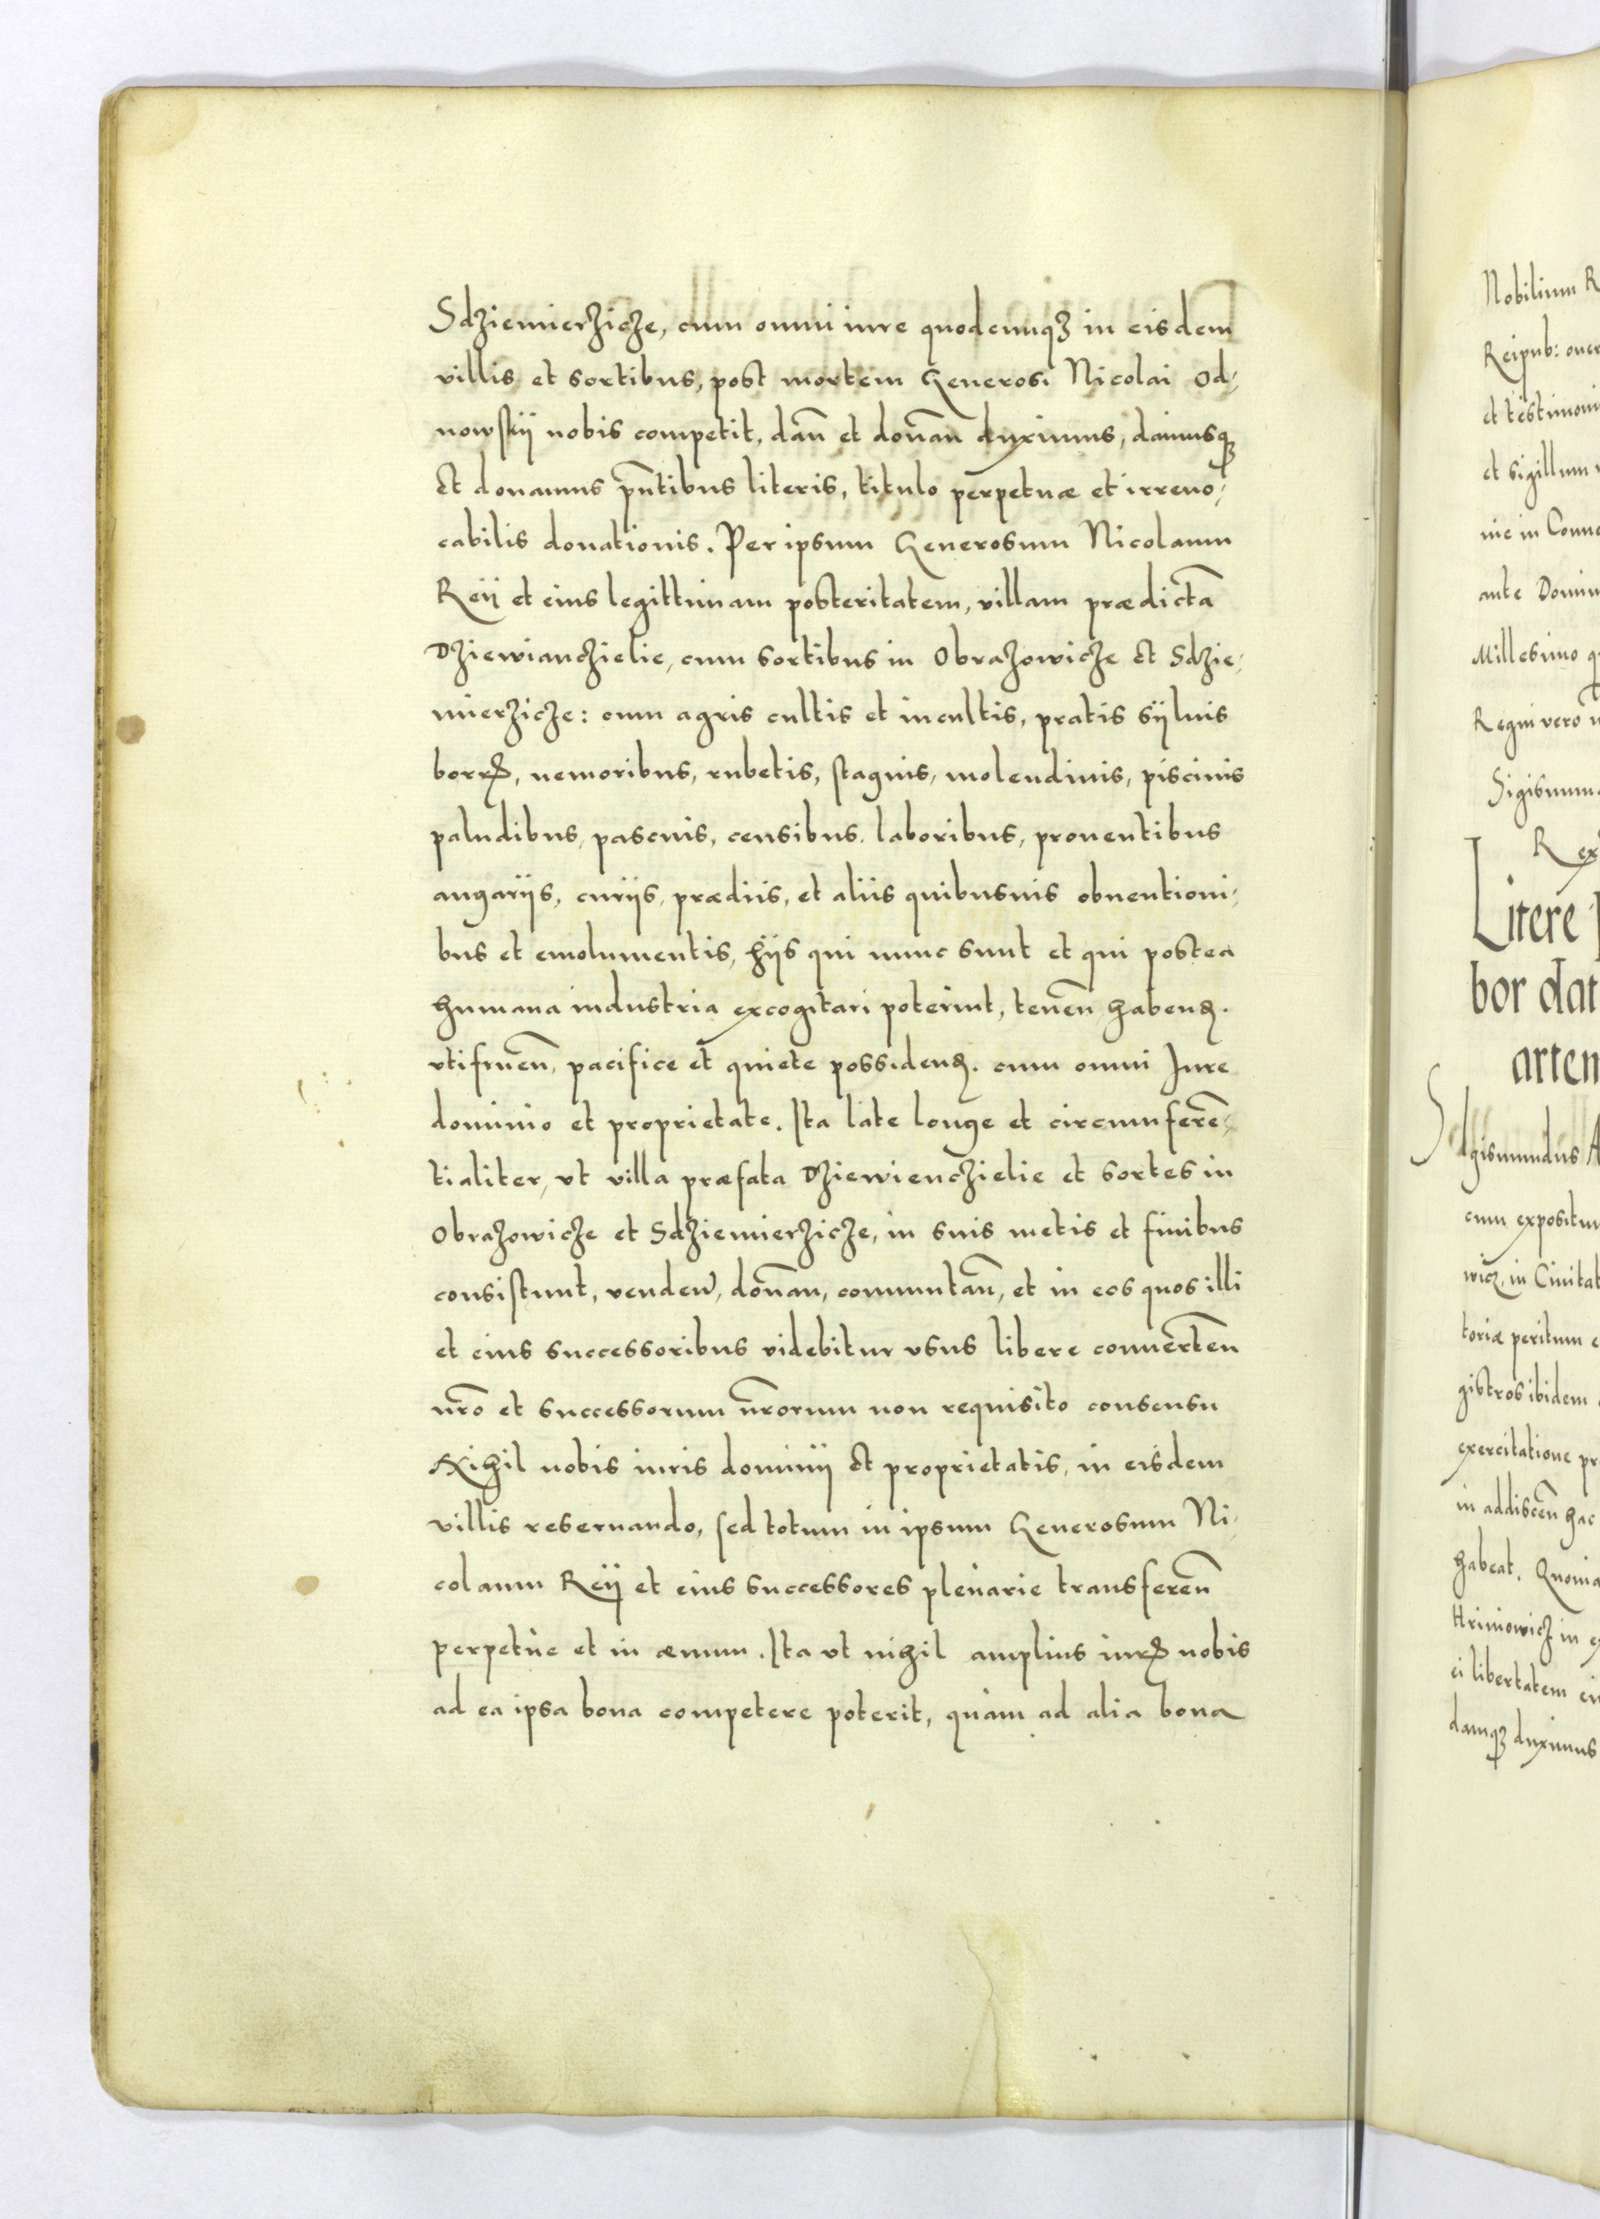 Sdziemierzicze, cum omni iure quodcunqꝫ in eisdem
villis et sortibus, post mortem Generosi Nicolai Od-
nowskÿ nobis competit, dan̄ et donan̄ duximus, damusqꝫ
et donamus pn̄tibus literis, titulo perpetuæ et irreuo-
cabilis donationis. Per ipsum Generosum Nicolaum
Reÿ et eius legittimam posteritatem, villam prædictā
Dziewianczielie, cum sortibus in Obrazowicze et Sdzie-
mierzicze: cum agris cultis et incultis, pratis sÿluis
borrꝭ, nemoribus, rubetis, stagnis, molendinis, piscinis
paludibus, pascuis, censibus, laboribus, prouentibus
angarijs, curijs, prædiis, et aliis quibusuis obuentioni-
bus et emolumentis, hÿs qui nunc sunt et qui postea
humana industria excogitari poterint, tenen̄ habenꝭ.
vtifruen̄, pacifice et quiete possidenꝭ. cum omni Iure
dominio et proprietate. Ita late longe et circumferē-
tialiter, vt villa præfata Dziewienczielie et sortes in
Obrazowicze et Sdziemierzicze, in suis metis et finibus
consistunt, venden̄, donan̄, commutan̄, et in eos quos illi
et eius successoribus videbitur vsus libere conuerten̄
nr̄o et successorum nr̄orum non requisito consensu
Nihil nobis iuris dominÿ et proprietatis, in eisdem
villis reseruando, sed totum in ipsum Generosum Ni-
colaum Reÿ et eius successores plenarie transferen̄
perpetue et in æuum. Ita vt nihil amplius iurꝭ nobis
ad ea ipsa bona competere poterit, quàm ad alia bona
Nobilium R
Reipub: oner
et testimoni
et sigillum
nie in Conue
ante Domin
Millesimo q
Regni vero n
Sigismun
Rex
Litere
bor dat
artem
Sigismundus A
cum expositum
wicz, in Ciuitat
toriæ peritum e
gistros ibidem
exercitatione pr
in addiscen̄ hac
habeat. Quonia
Hriniowicz in e
ei libertatem
damqꝫ duximus